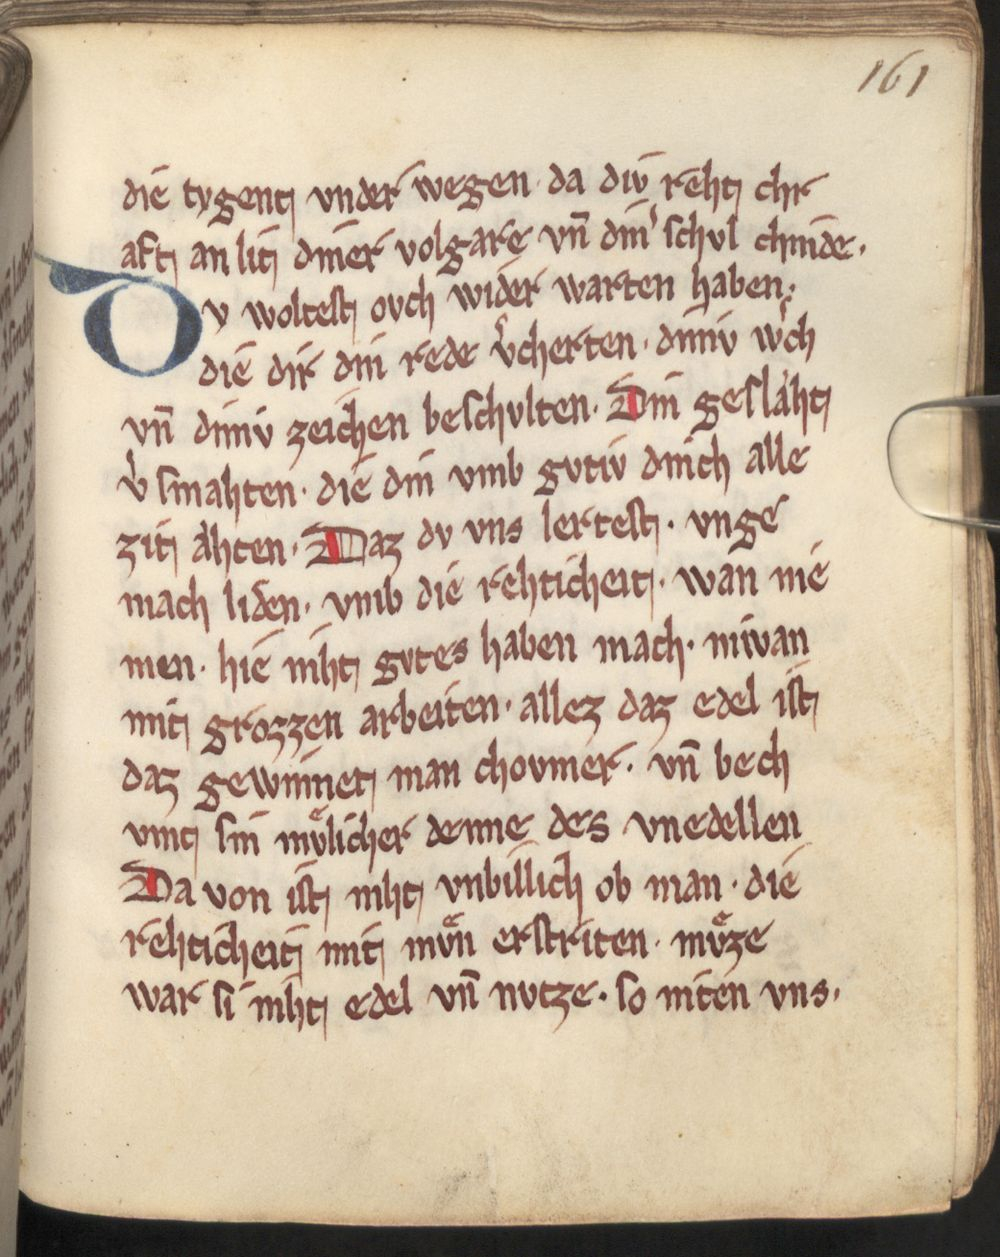 161
die tvgent vnder wegen · da div reht chr
aft an lit diner volgare vn̄ din͛ schvl chinde ·
Dv woltest ovch wider warten haben ·
die dir din rede v͛cherten · diniv w͛ch
vn̄ diniv zeichen beschvlten · Din geslaͤht
v͛ smahten · die din vmb gvtiv dinch alle
zit aͤhten · Daz dv vns lertest · vnge
mach liden · vmb die rehticheit · wan nie
men · hie niht gvtes haben mach · nivan
mit grozzen arbeiten · allez daz edel ist
daz gewinnet man chovmer · vn̄ bech
vmt sin mvͤlicher denne des vnedellen
Da von ist niht vnbillich ob man · die
rehticheit mit mvͤn erstriten · mvͤze
war si niht edel vn̄ nvtze · so niten vns ·